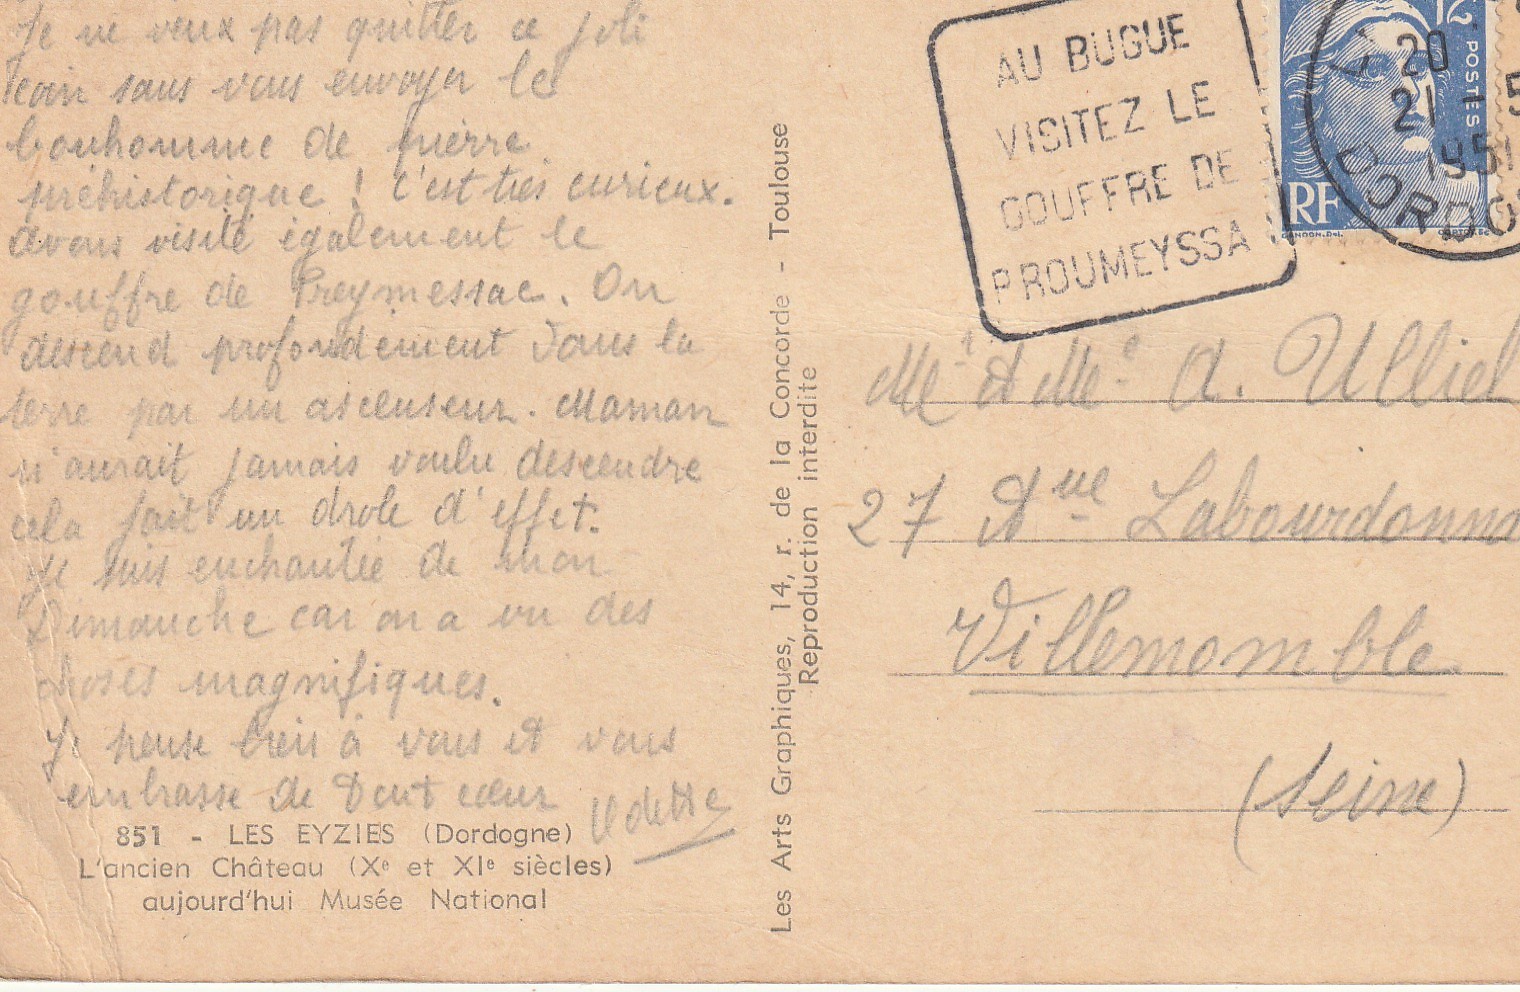 Je ne veux pas quitter ce joli
coin sans vous envoyer le
bonhomme de pierre
préhistorique ! C'est très curieux.
Avons visité également le
gouffre de Preymessac. On
descend profondément dans la
terre par un ascenseur. Maman
n'aurait jamais voulu descendre
cela fait un drole d'effet.
Je suis enchantée de mon
Dimanche car on a vu des
choses magnifiques.
Je pense bien à vous et vous
embrasse de tout cœur
851 - LES EYZIES (Dordogne)
L'ancien Château (Xe et XIe siècles)
aujourd'hui Musée National
Les Arts Graphiques, 14, r. de la Concorde - Toulouse
Reproduction interdite
AU BUGUE
VISITEZ LE
GOUFFRE DE
PROUMEYSSA
12
POSTES
RF
GANDON.Del.
20
21 - 5
1951
DORDO
Mr et Me A. Ulliel
27 Ave Labourdonna
Villemomble
(Seine)